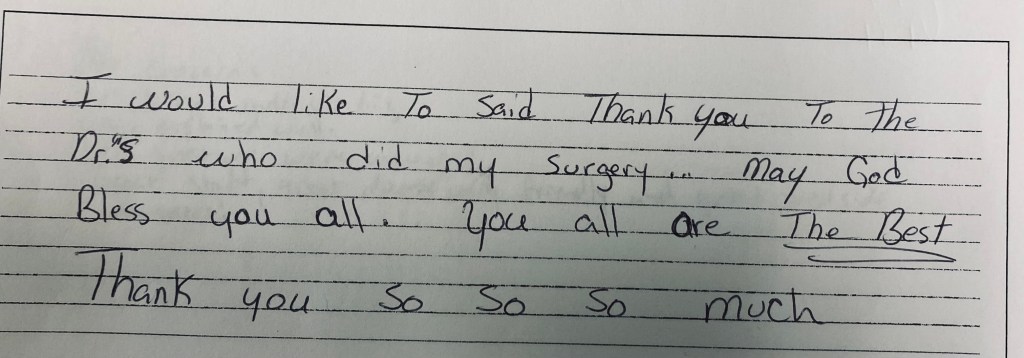 I would like To Said Thank you To the
Dr."s who did my surgery... May God
Bless you all. You all are The Best
Thank you so so so much